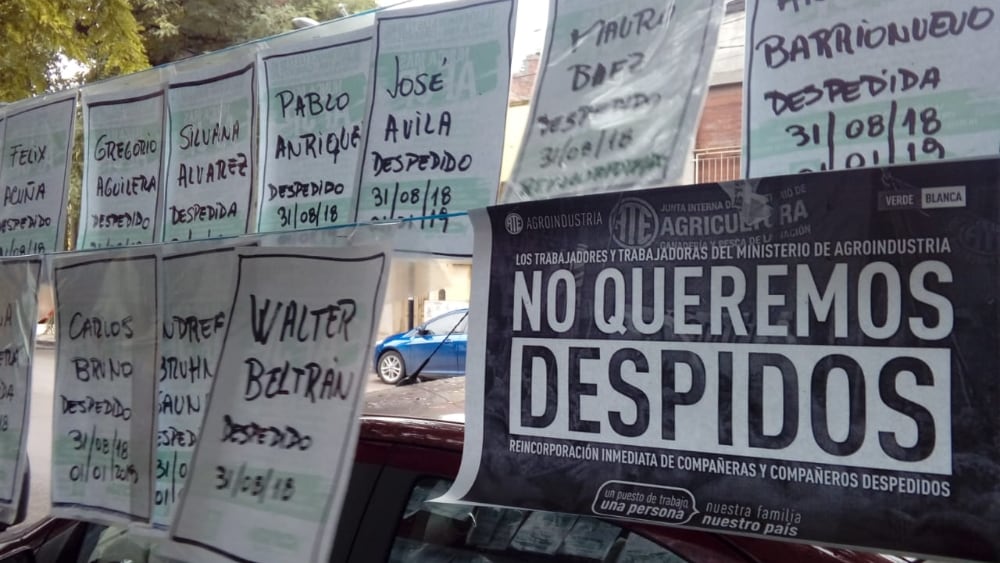 FELIX
ACUÑA
DESPEDIDO
GREGORIO
AGUILERA
DESPEDIDO
SILVANA
ALVAREZ
DESPEDIDA
PABLO
ANRIQUE
DESPEDIDO
31/08/18
JOSÉ
AVILA
DESPEDIDO
31/08/18
MAURO
BAEZ
DESPEDIDO
31/08/18
BARRIONUEVO
DESPEDIDA
31/08/18
31/01/19
CARLOS
BRUNO
DESPEDIDO
31/08/18
01/01/2019
BRUHN
WALTER
BELTRÁN
DESPEDIDO
31/08/18
ATE AGROINDUSTRIA
ATE
JUNTA INTERNA DE
AGRICULTURA
GANADERÍA Y PESCA DE LA NACIÓN
VERDE BLANCA
LOS TRABAJADORES Y TRABAJADORAS DEL MINISTERIO DE AGROINDUSTRIA
NO QUEREMOS
DESPIDOS
REINCORPORACIÓN INMEDIATA DE COMPAÑERAS Y COMPAÑEROS DESPEDIDOS
un puesto de trabajo,
una persona
nuestra familia
nuestro país